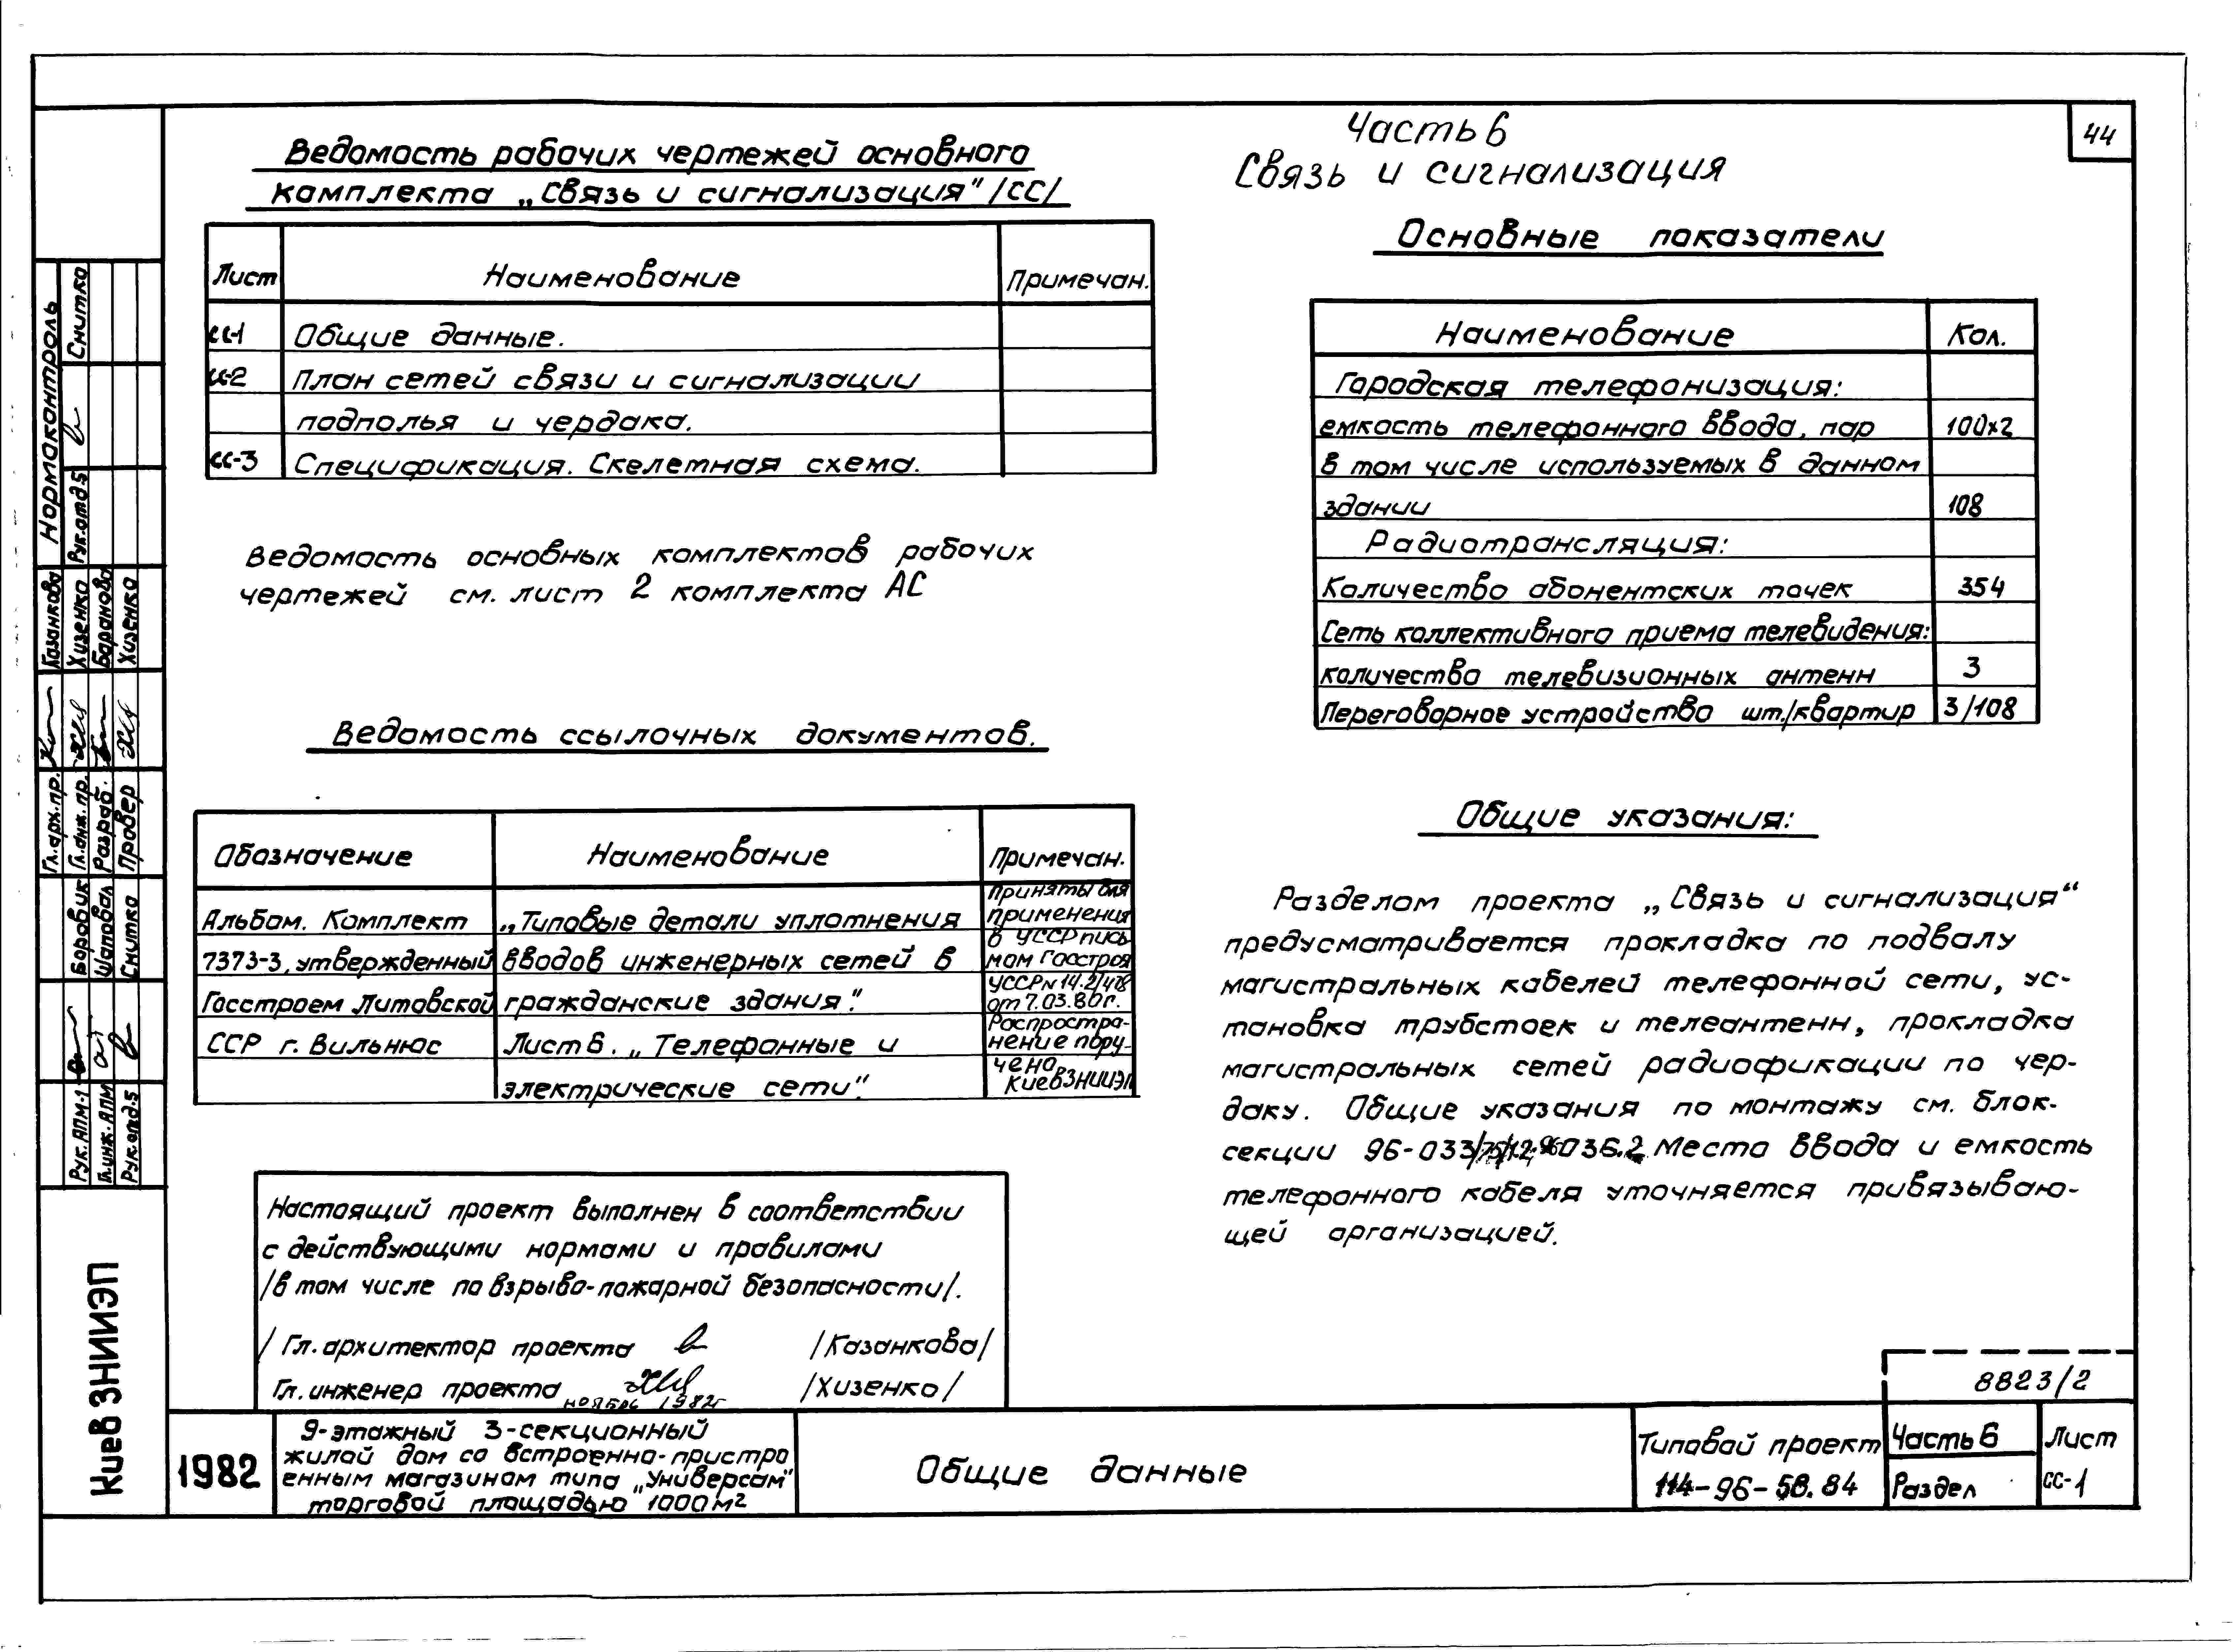 44
Ведомость рабочих чертежей основного
комплекта „Связь и сигнализация" /СС/
Лист Наименование Примечан.
СС-1 Общие данные.
СС-2 План сетей связи и сигнализации
подполья и чердака.
СС-3 Спецификация. Скелетная схема.
Ведомость основных комплектов рабочих
чертежей см. лист 2 комплекта АС
Ведомость ссылочных документов.
Обозначение Наименование Примечан.
Альбом. Комплект „Типовые детали уплотнения
7373-3, утвержденный вводов инженерных сетей в
Госстроем Литовской гражданские здания".
ССР г. Вильнюс Лист 6. „Телефонные и
электрические сети".
Приняты для
применения
в УССР пись
мом Госстроя
УССР N 14.2/478
от 7.03.80г.
Распростра-
нение пору-
чено
КиевЗНИИЭП
Настоящий проект выполнен в соответствии
с действующими нормами и правилами
/в том числе по взрыво-пожарной безопасности/.
/Гл. архитектор проекта /Казанкова/
Гл. инженер проекта /Хизенко/
ноябрь 1982г
Часть 6
Связь и сигнализация
Основные показатели
Наименование Кол.
Городская телефонизация:
емкость телефонного ввода, пар 100×2
в том числе используемых в данном
здании 108
Радиотрансляция:
Количество абонентских точек 354
Сеть коллективного приема телевидения:
количество телевизионных антенн 3
Переговорное устройство шт./квартир 3/108
Общие указания:
Разделом проекта „Связь и сигнализация"
предусматривается прокладка по подвалу
магистральных кабелей телефонной сети, ус-
тановка трубстоек и телеантенн, прокладка
магистральных сетей радиофикации по чер-
даку. Общие указания по монтажу см. блок-
секции 96-033/ 036.2 Место ввода и емкость
телефонного кабеля уточняется привязываю-
щей организацией.
8823/2
1982
9-этажный 3-секционный
жилой дом со встроенно-пристро
енным магазином типа „Универсам"
торговой площадью 1000 м2
Общие данные
Типовой проект
114-96-58.84
Часть 6
Раздел
Лист
СС-1
Нормоконтроль
Снитко
Рук. отд 5
Казанкова
Хизенко
Баранова
Хизенко
Гл. арх. пр.
Гл. инж. пр.
Разраб.
Провер
Боровик
Шаповал
Снитко
Рук. АПМ-1
Гл. инж. АПМ
Рук. отд-5
Киев ЗНИИЭП